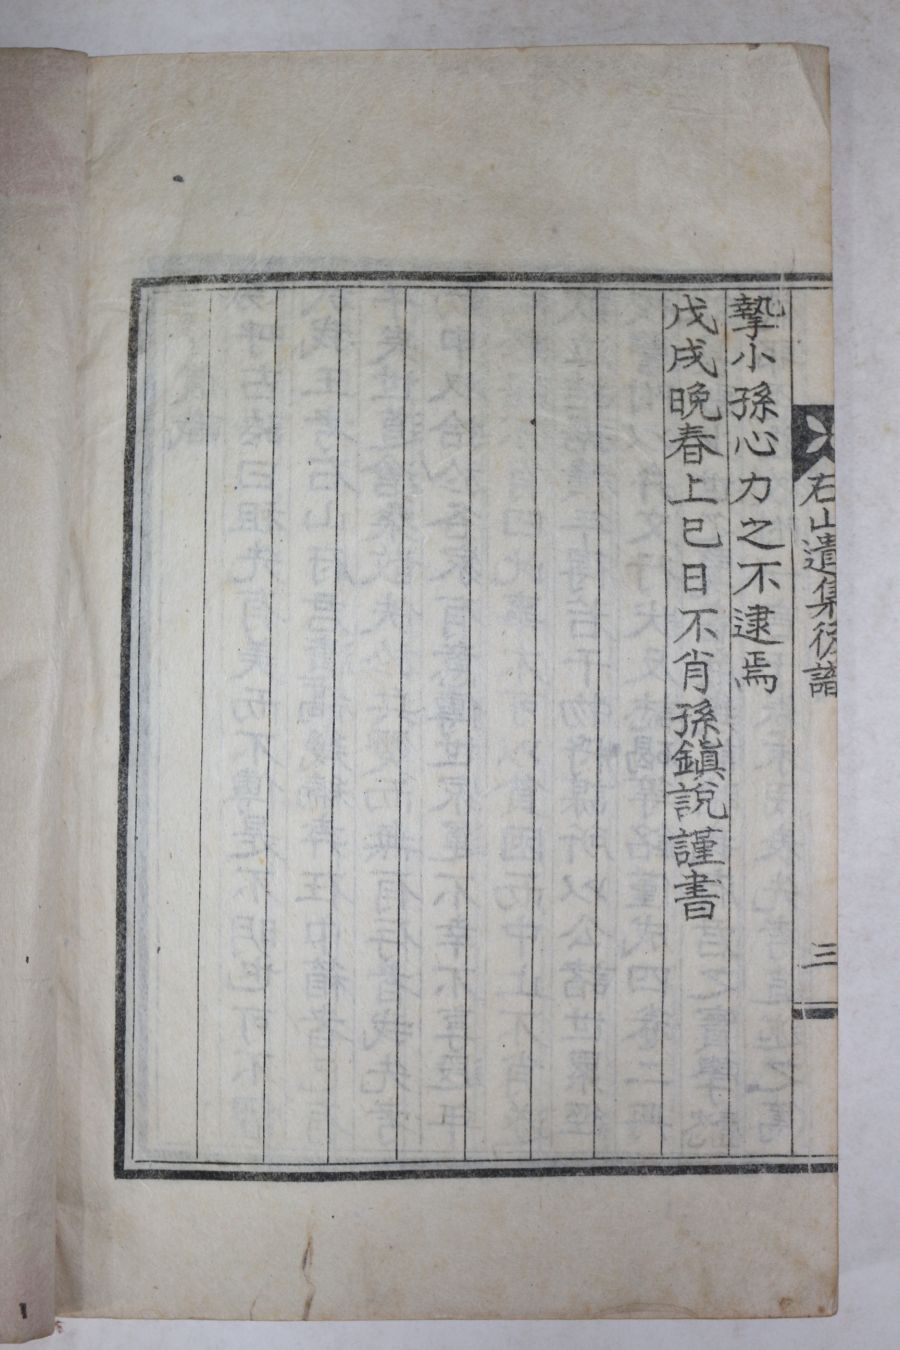 石山遺集後
三
摯小孫心力之不逮焉
戊戌晩春上巳日不肖孫鎭說謹書